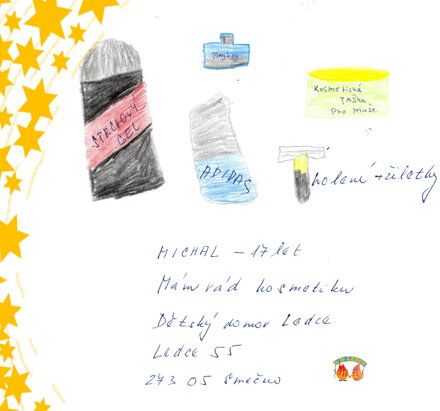 Playboy
Kosmetická
taška
pro muže
SPRCHOVÝ
GEL
ADIDAS
holení + žiletky
MICHAL – 17 let
Mám rád kosmetiku
Dětský domov Ledce
Ledce 55
273 05 Smečno